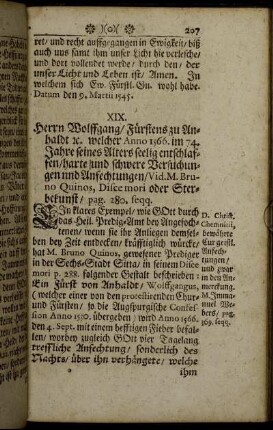 ❀ )o( ❀ 207
ret/ und recht auffgegangen in Ewigkeit/ biß
auch uns samt ihm unser Licht die verlesche/
und dort vollendet werde/ durch den/ der
unser Licht und Leben ist/ Amen. In
welchem sich Ew. Fürstl. Gn. wohl habe.
Datum den 9. Martii 1545.
XIX.
Herrn Wolffgang/ Fürstens zu An-
haldt ꝛc. welcher Anno 1566. im 74.
Jahre seines Alters seelig entschlaf-
fen/ harte und schwere Versuchun-
gen und Anfechtungen/ Vid. M. Bru-
no Quinos, Disce mori oder Ster-
bekunst/ pag. 280, seqq.
EIn klares Exempel/ wie GOtt durch
das Heil. Predig-Amt bey Angefoch-
tenen/ wenn sie ihr Anliegen demsel-
ben bey Zeit entdecken/ kräfftiglich würcke/
hat M. Bruno Quinos, gewesener Prediger
in der Sechs-Stadt Sittau/ in seinem Disce
mori p. 288. folgender Gestalt beschrieben:
Ein Fürst von Anhaldt/ Wolffgangus,
(welcher einer von den protestirenden Chur-
und Fürsten/ so die Augspurgische Confes-
sion Anno 1530. übergeben/) wird Anno 1566.
den 4. Sept. mit einem hefftigen Fieber befal-
len/ worbey zugleich GOtt vier Tagelang
treffliche Anfechtung/ sonderlich des
Nachts/ über ihn verhängete/ welche
ihm
D. Christ.
Chemnitii,
bewährte
Cur geistl.
Anfech-
tungen/
und zwar
in den An-
merckung.
M. Imma-
nuel We-
bers/ pag.
369. seqq.